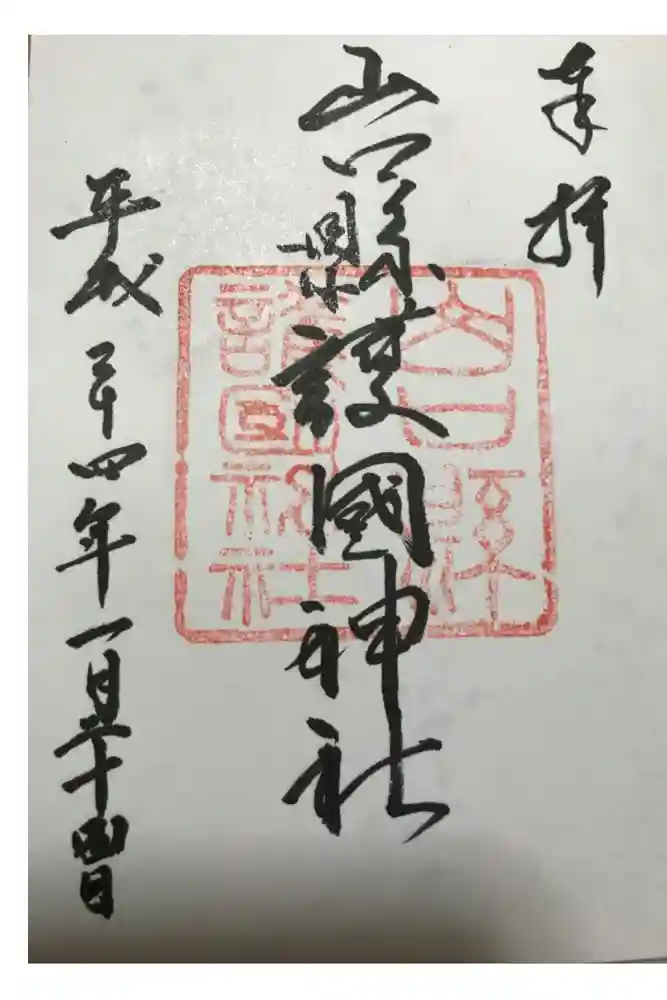 奉拝
山口縣護國神社
平成二十四年一月二十四日
山口縣
護國神社